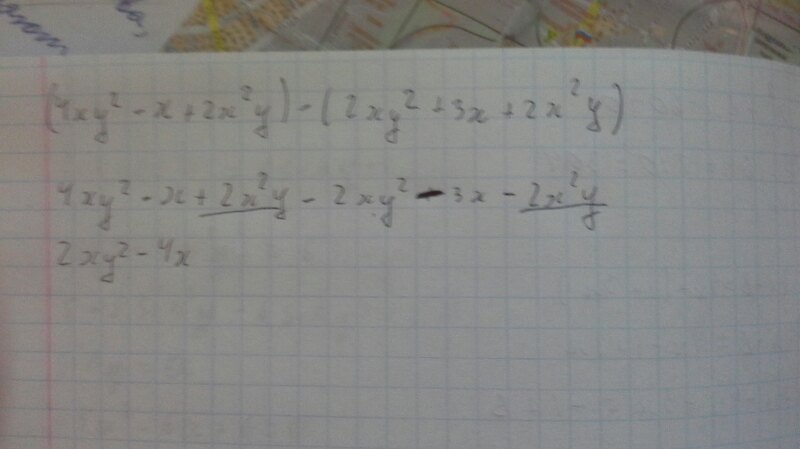 (4xy² - x + 2x²y) - (2xy² + 3x + 2x²y)
4xy² - x + 2x²y - 2xy² - 3x - 2x²y
2xy² - 4x